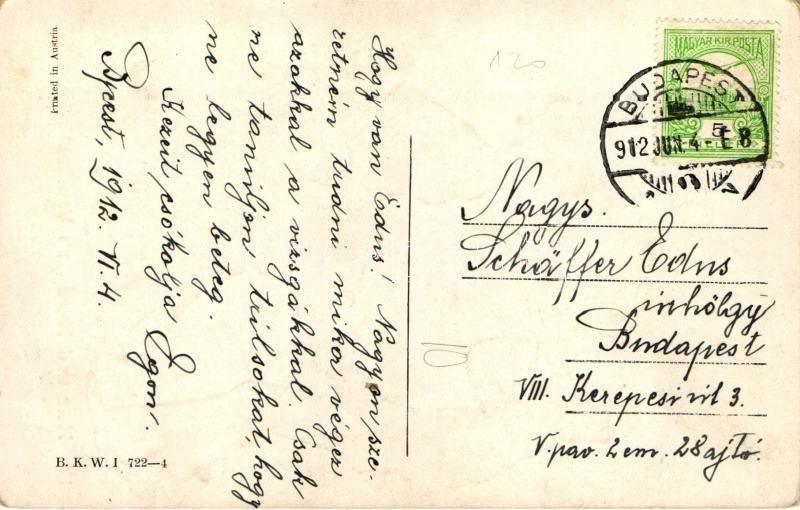 Hogy van Edus! Nagyon sze-
retném tudni mika végez
azokkal a vizsgákkal. Csak
ne tanuljon túlsokat, hogy
ne legyen beteg.
Kezeit csókolja Egon.
Bpest, 1912. VI. 4.
Printed in Austria
B. K. W. I 722—4
120
MAGYAR KIR. POSTA
BUDAPEST
912 JUN. 4 - E 8
5
Nagys.
Schäffer Edus
úrhölgy
Budapest
VIII. Kerepesi út 3.
V. pav. 2 em. 28 ajtó.